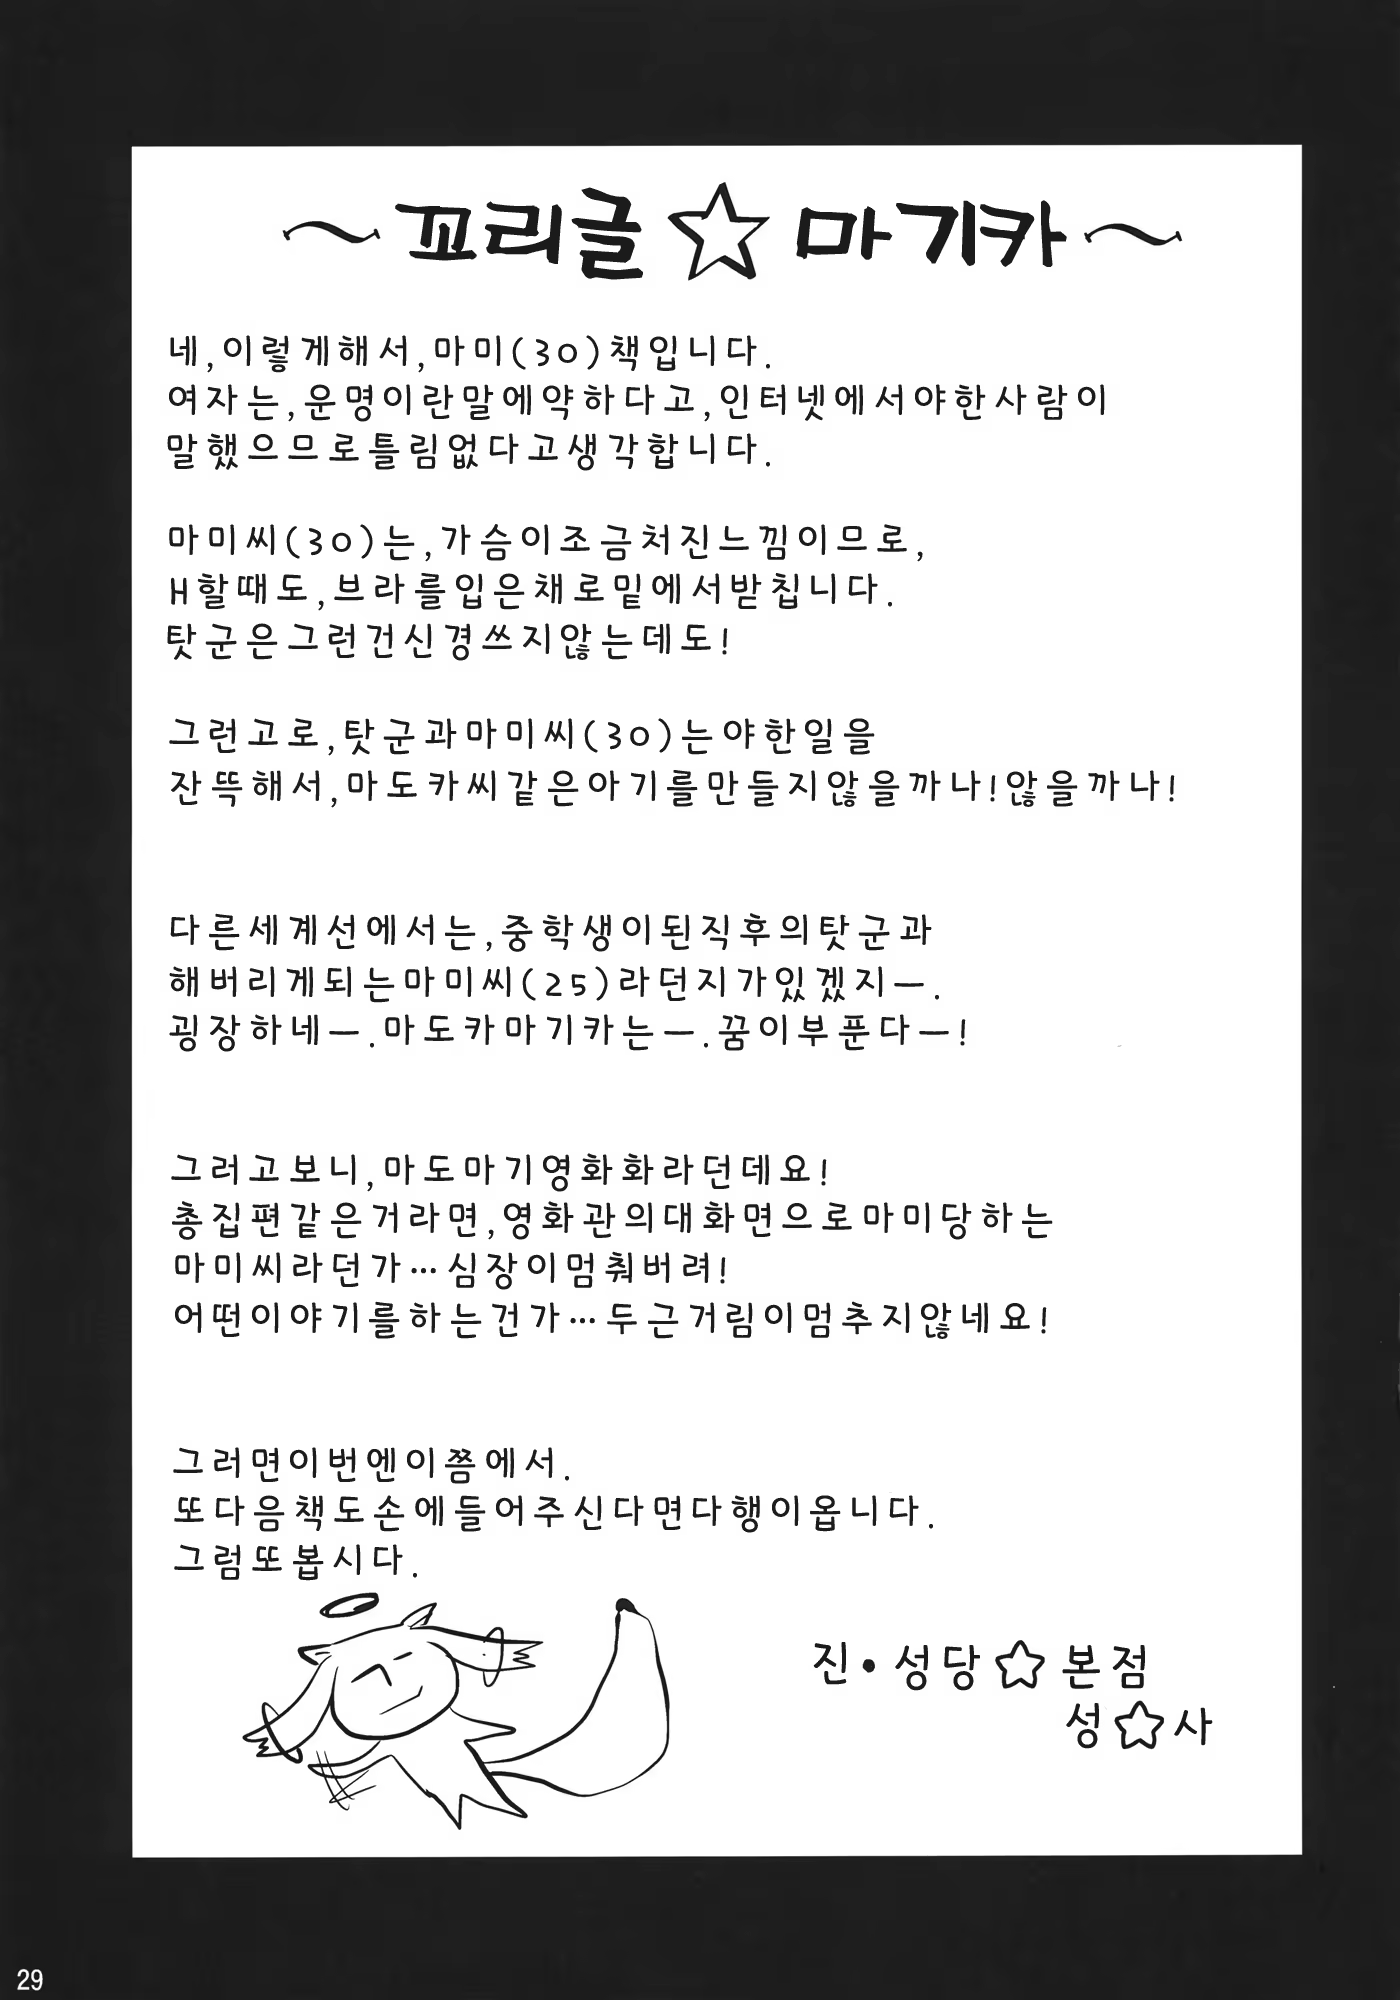 ~꼬리글☆마기카~
네,이렇게해서,마미(30)책입니다.
여자는,운명이란말에약하다고,인터넷에서야한사람이
말했으므로틀림없다고생각합니다.
마미씨(30)는,가슴이조금처진느낌이므로,
H할때도,브라를입은채로밑에서받칩니다.
탓군은그런건신경쓰지않는데도!
그런고로,탓군과마미씨(30)는야한일을
잔뜩해서,마도카씨같은아기를만들지않을까나!않을까나!
그러고보니,마도마기영화화라던데요!
총집편같은거라면,영화관의대화면으로마미당하는
마미씨라던가…심장이멈춰버려!
어떤이야기를하는건가…두근거림이멈추지않네요!
그러면이번엔이쯤에서.
또다음책도손에들어주신다면다행이옵니다.
그럼또봅시다.
진•성당☆본점
성☆사
29